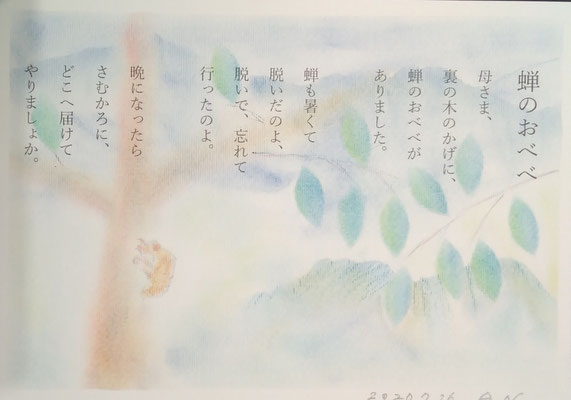 蝉のおべべ
母さま、
裏の木のかげに、
蝉のおべべが
ありました。
蝉も暑くて
脱いだのよ、
脱いで、忘れて
行ったのよ。
晩になったら
さむかろに、
どこへ届けて
やりましょか。